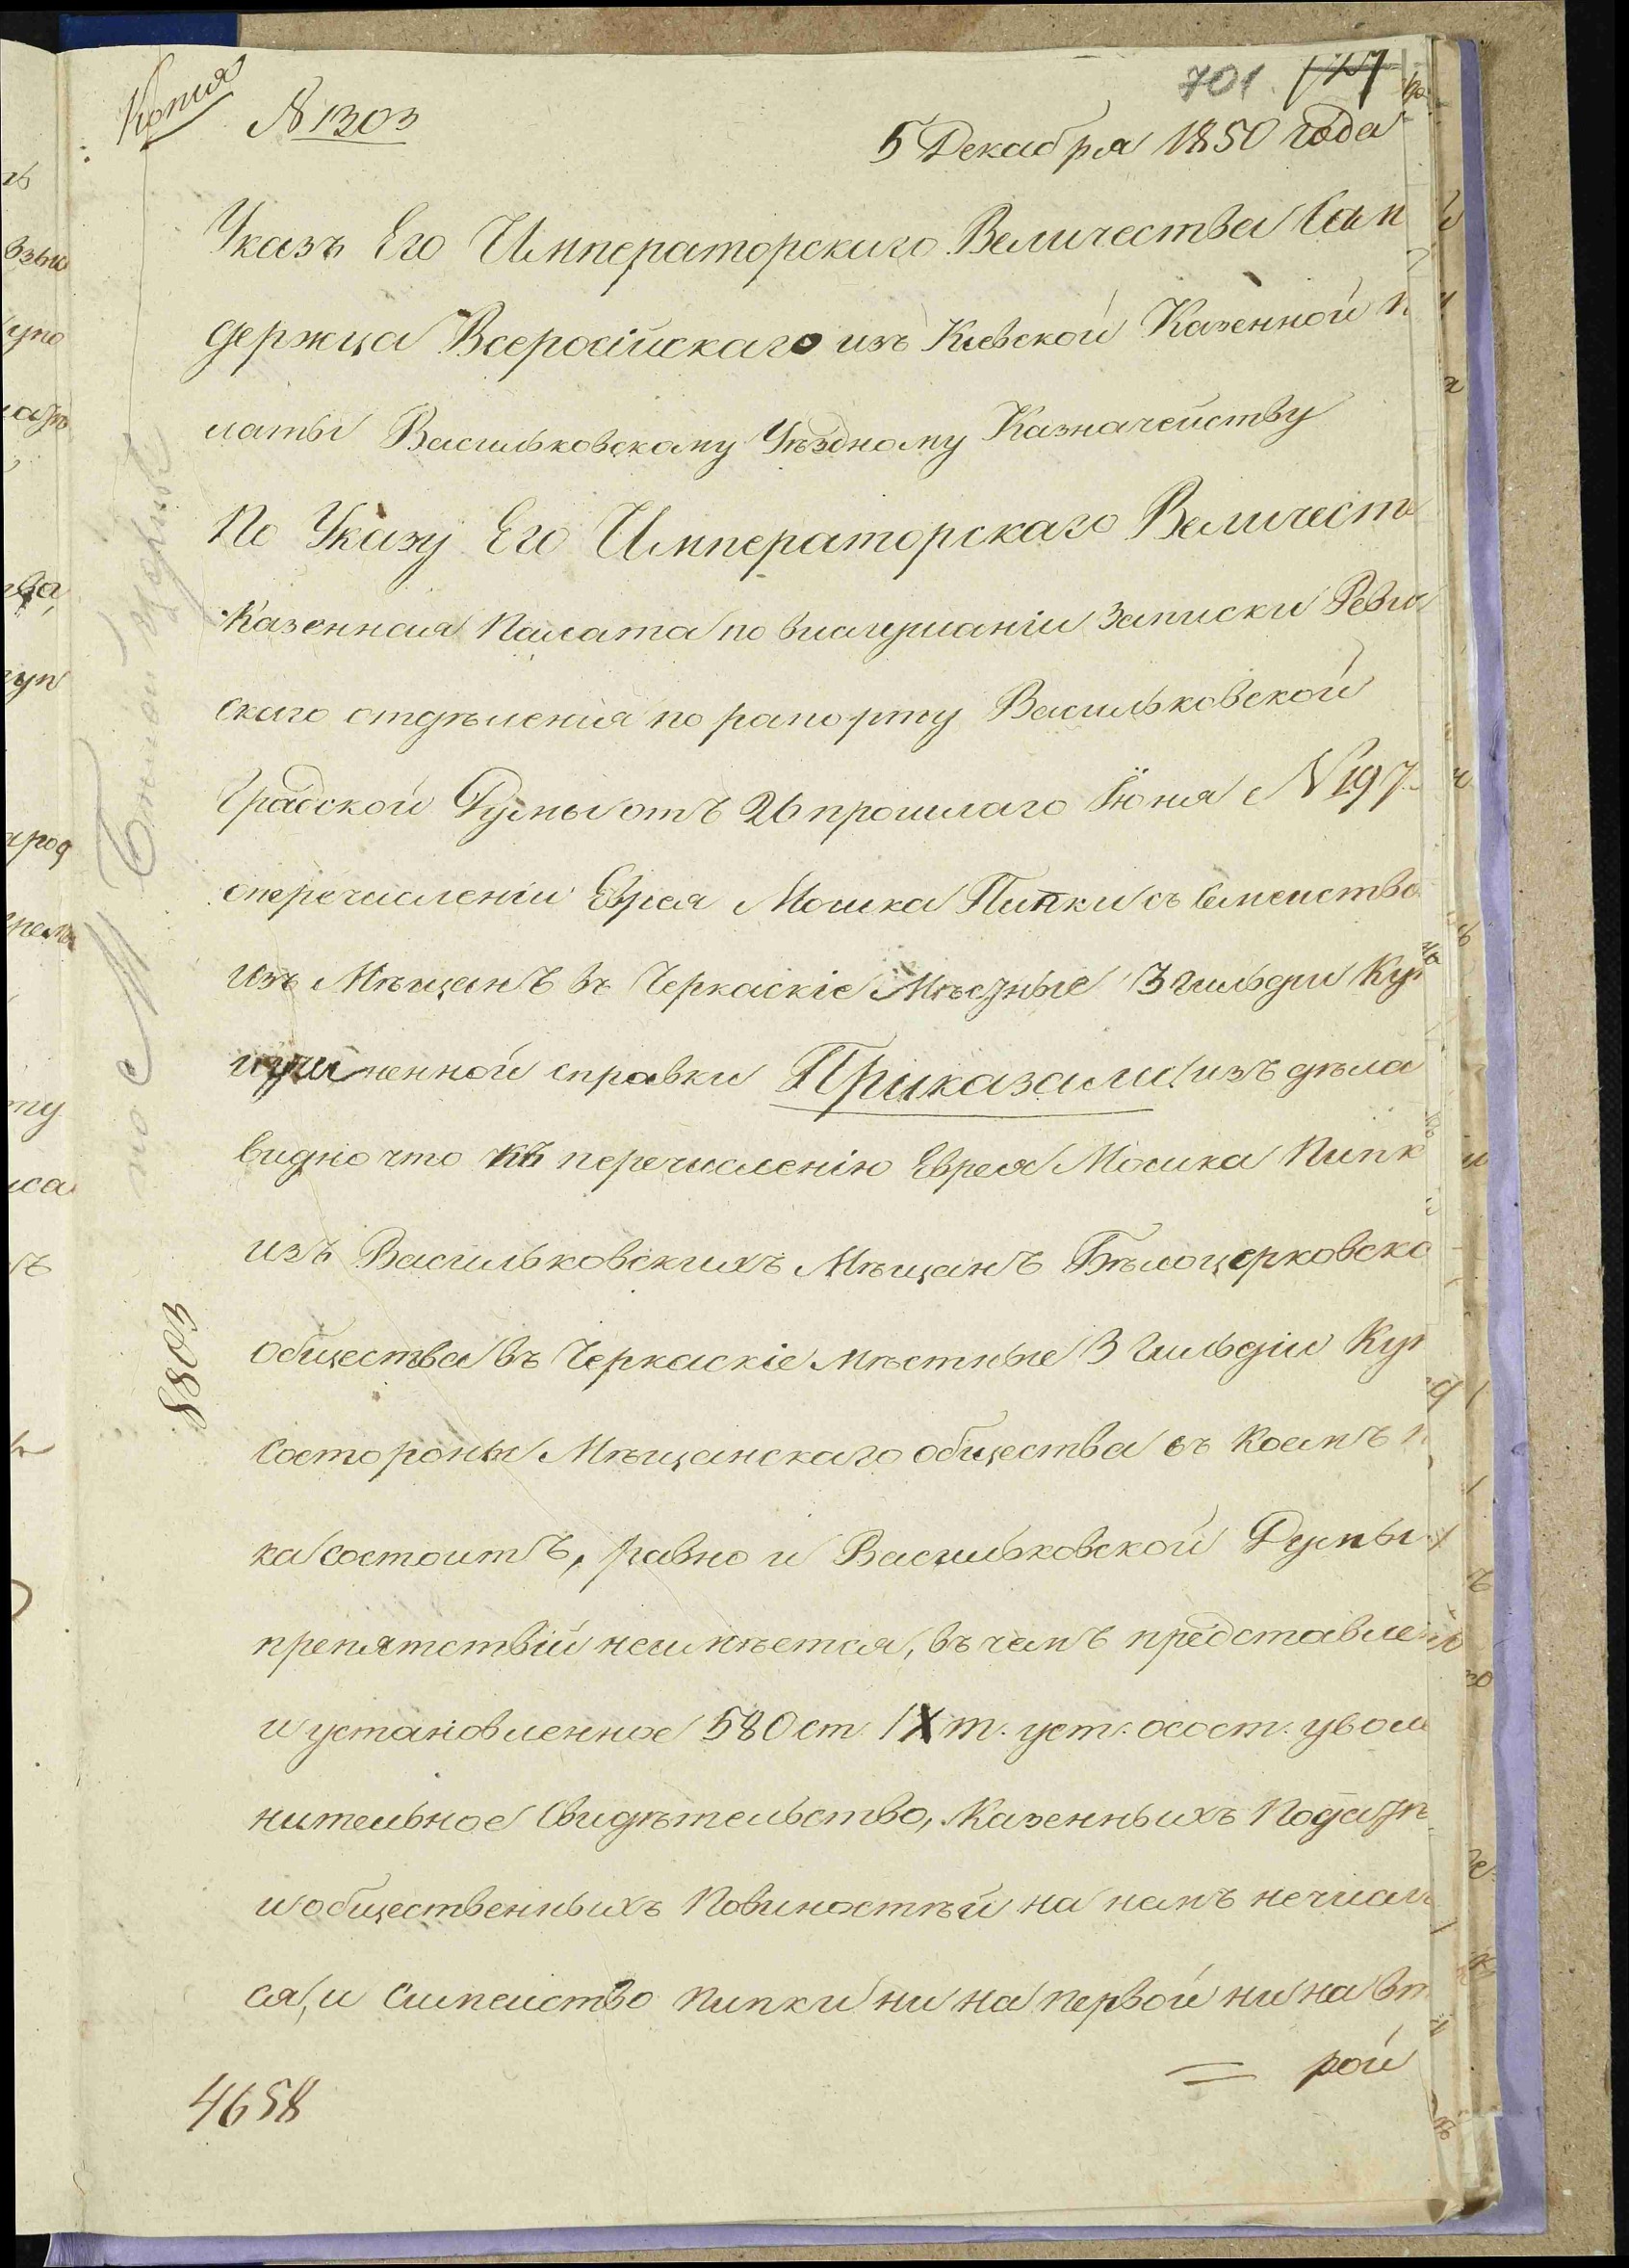 Копія
№ 1303
701.
5 Декабря 1850 года
Указъ Его Императорскаго Величества Сам
держца Всеросійскаго изъ Кіевской Казенной п
латы Васильковскому Уѣздному Казначейству
По Указу Его Императорскаго Величеств
Казенная Палата по выслушаніи Записки Реви
скаго отдѣленія по рапорту Васильковской
Градской Думы отъ 26 прошлаго Іюня № 197.
оперечисленіи Еврея Мошка Пипки съ Семействo
изъ Мѣщанъ въ Черкаскіе Мѣстные 3 Гильдіи Куп
иучиненной справки Приказали изъ дѣла
видно что къ перечисленію Еврея Мошка Пипк
изъ Васильковскихъ Мѣщанъ Бѣлоцерковско
общества въ Черкаскіе мѣстные 3 Гильдіи Куп
состороны Мѣщанскаго общества въ коемъ
ка состоитъ, равно и Васильковской Думы
препятствій неимѣется, въ чемъ представле
и установленное 580 ст. IX т. уст. осост. уволь
нительное Свидѣтельство, Казенныхъ Податѣ
иобщественныхъ Повиностѣй на немъ нечисли
ся, и Симейство Пипки ни на первой ни на вт
рой
8803
4658